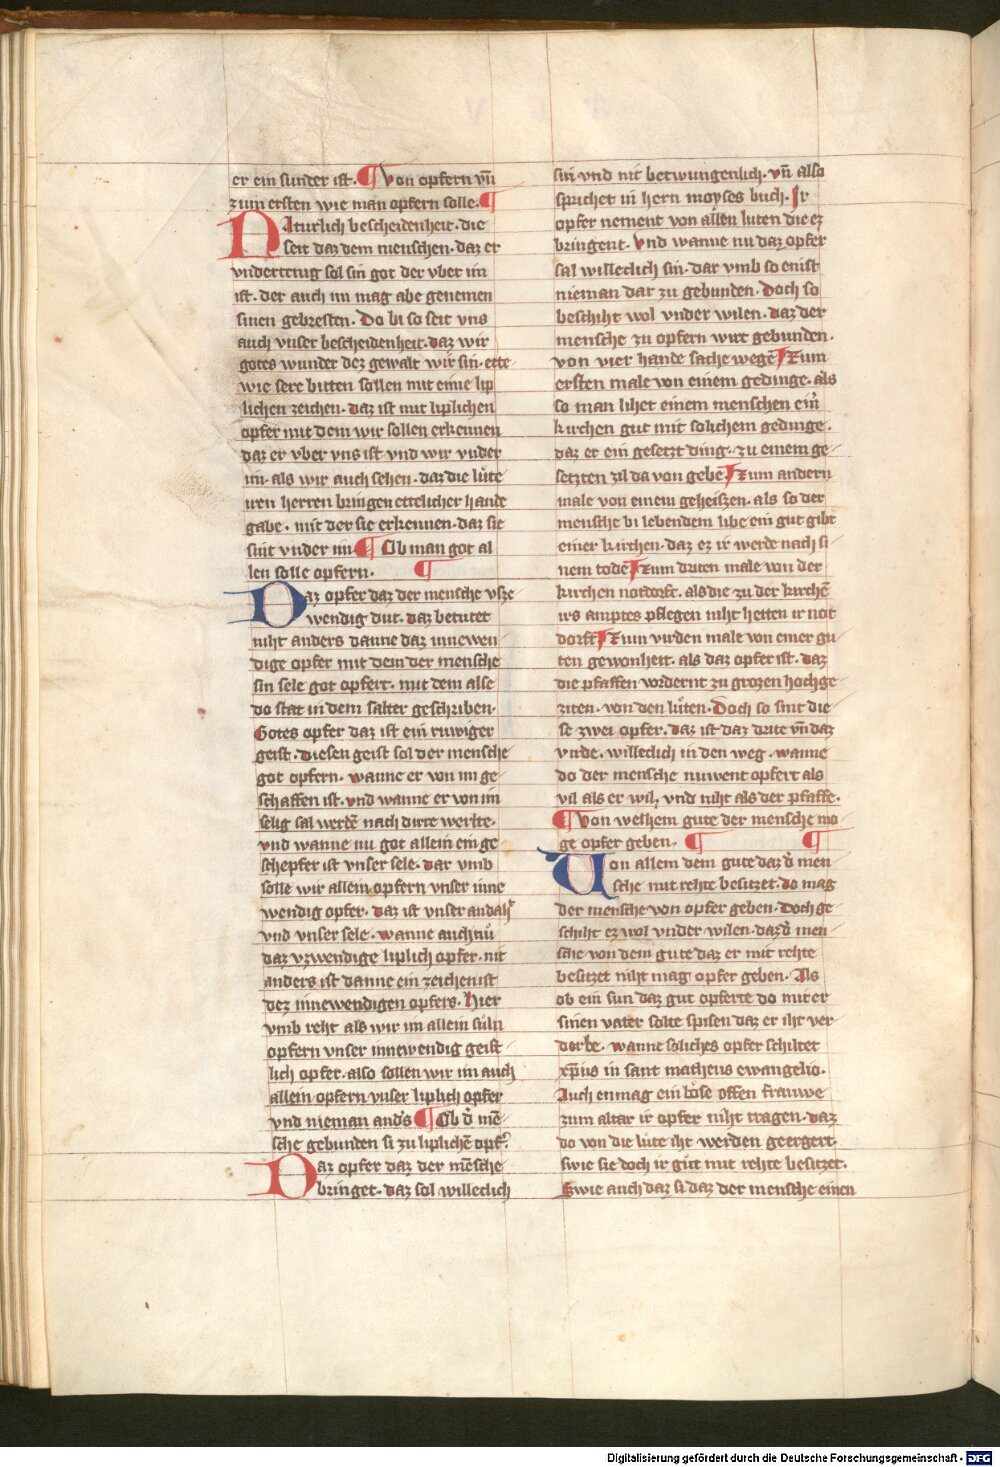 er ein sunder ist. ¶ Von opfern vn̄
zum ersten wie man opfern solle. ¶
Naturlich bescheidenheit. die
seit daz dem menschen. daz er
vndertenig sol sin got der vber im
ist. der auch im mag abe genemen
sinen gebresten. Do bi so seit vns
auch vnser bescheidenheit. daz wir
gotes wunder dez gewalt wir sin.
wie sere bitten sollen mit eime lip
lichen zeichen. daz ist mit liplichen
opfer mit dem wir sollen erkennen
daz er vber vns ist vnd wir vnder
im. als wir auch sehen. daz die lute
iren herren bringen ettelicher hande
gabe. mit der sie erkennen. daz sie
sint vnder im ¶ Ob man got al
len solle opfern. ¶
Daz opfer daz der mensche vsze
wendig dut. daz betutet
niht anders danne daz innewen
dige opfer mit dem der mensche
sin sele got opfert. mit dem alse
do stat in dem salter geschriben.
Gotes opfer daz ist ein ruwiger
geist. diesen geist sol der mensche
got opfern. wanne er von im ge
schaffen ist. vnd wanne er von im
selig sal werdē nach dirre werlte.
vnd wanne nu got allein ein ge
schepfer ist vnser sele. dar vmb
solle wir allein opfern vnser inne
wendig opfer. daz ist vnser andaht
vnd vnser sele. wanne auch nu
daz vzwendige liplich opfer. nit
anders ist danne ein zeichen ist
dez innewendigen opfers. hier
vmb reht als wir im allein suln
opfern vnser innewendig geist
lich opfer. also sollen wir im auch
allein opfern vnser liplich opfer
vnd nieman and's ¶ Ob d' mē
sche gebunden si zu liplichē opf'.
Daz opfer daz der mēsche
bringet. daz sol willeclich
sin vnd nit betwungenlich. vn̄ also
sprichet in hern moyses buch. Ir
opfer nement von allen luten die ez
bringent. Vnd wanne nu daz opfer
sal willeclich sin. dar vmb so enist
nieman dar zu gebunden. Doch so
beschiht wol vnder wilen. daz der
mensche zu opfern wirt gebunden.
von vier hande sache wegē ¶ Zum
ersten male von einem gedinge. als
so man lihet einem menschen ein
kirchen gut mit solichem gedinge.
daz er ein gesetzt ding. zu einem ge
setzten zil da von gebe ¶ Zum andern
male von einem geheiszen. als so der
mensche bi lebendem libe ein gut gibt
einer kirchen. daz ez ir werde nach si
nem tode ¶ Zum driten male von der
kirchen notdorft. als die zu der kirchē
irs amptes pflegen niht hetten ir not
dorft ¶ Zum virden male von einer gu
ten gewonheit. als daz opfer ist. daz
die pfaffen vordernt zu grozen hochge
ziten. von den luten. Doch so sint die
se zwei opfer. daz ist daz drite vn̄ daz
virde. willeclich in den weg. wanne
do der mensche nuwent opfert als
vil als er wil, vnd niht als der pfaffe.
¶ Von welhem gute der mensche mo
ge opfer geben. ¶ ¶
Von allem dem gute daz d' men
sche mit rehte besitzet. do mag
der mensche von opfer geben. Doch ge
schiht ez wol vnder wilen. daz d' men
sche von dem gute daz er mit rehte
besitzet niht mag opfer geben. Als
ob ein sun daz gut opferte do mit er
sinen vater solte spisen daz er iht ver
dorbe. wanne soliches opfer schiltet
xp̄us in sant matheus ewangelio.
Auch enmag ein böse offen frauwe
zum altar ir opfer niht tragen. daz
do von die lute iht werden geergert.
swie sie doch ir gut mit rehte besitzet.
Swie auch daz si daz der mensche einen
Digitalisierung gefördert durch die Deutsche Forschungsgemeinschaft - DFG